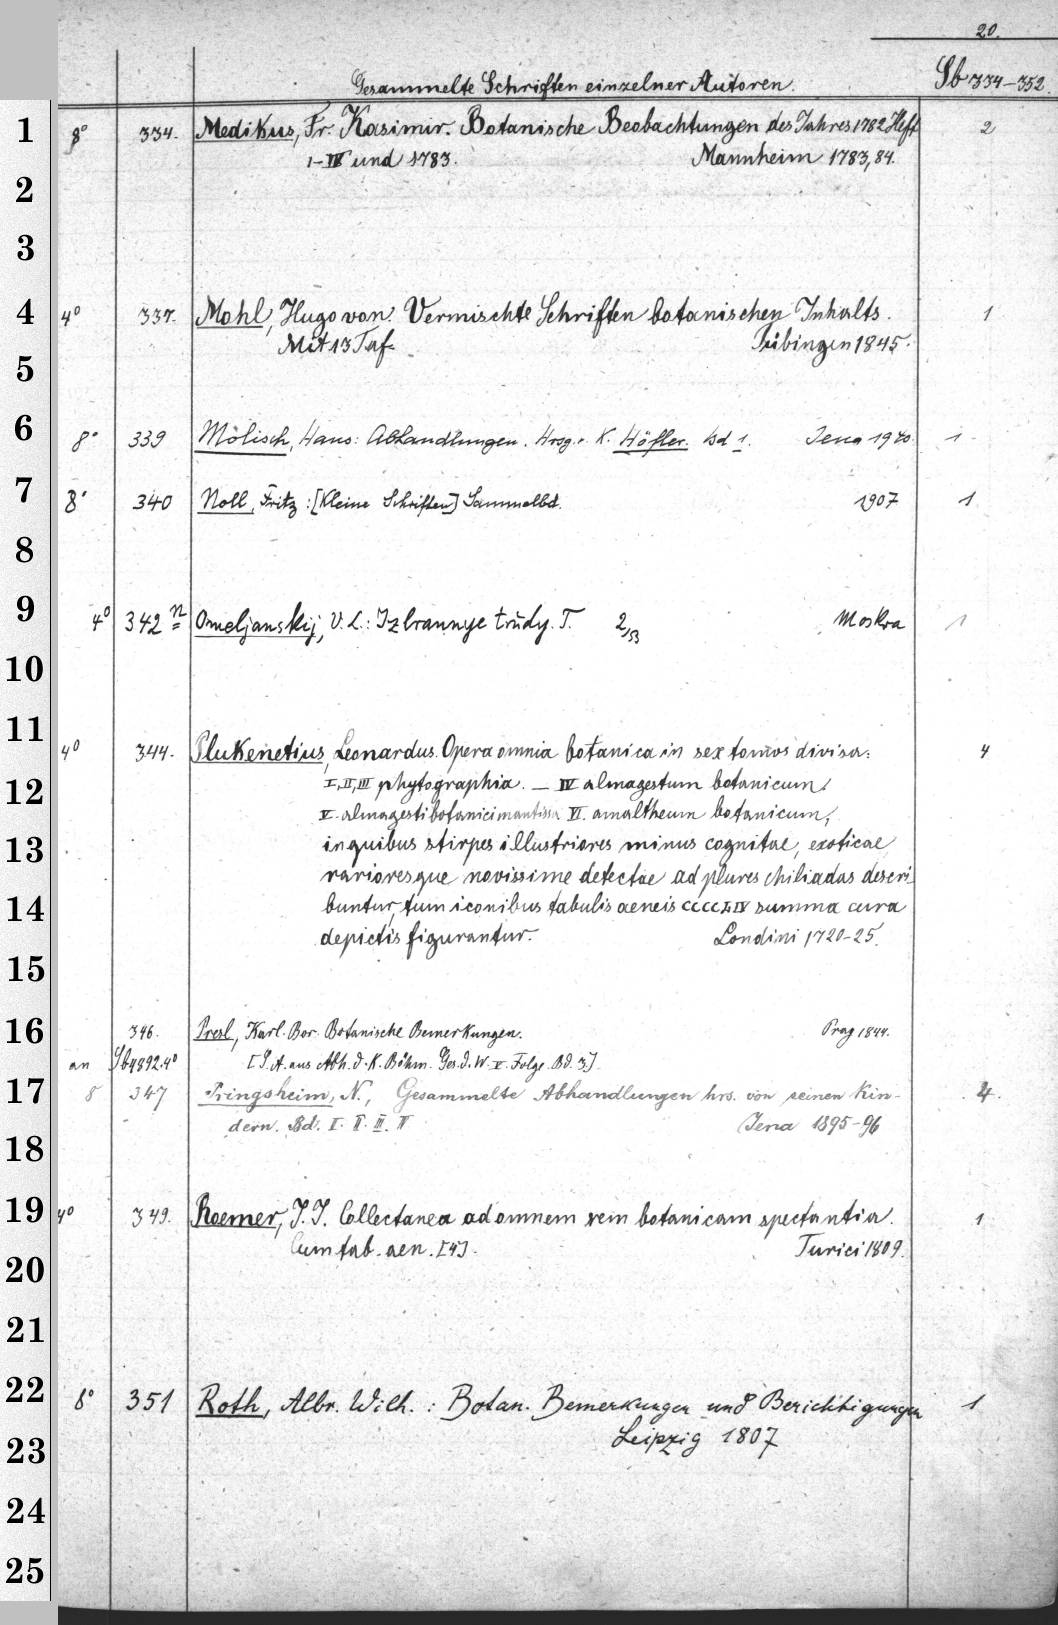 20.
Gesammelte Schriften einzelner Autoren. Sb 334-352.
1 8° 334. Medikus, Fr. Kasimir. Botanische Beobachtungen des Jahres 1782 Heft 2
I-IV und 1783. Mannheim 1783, 84.
2
3
4 4° 337. Mohl, Hugo von. Vermischte Schriften botanischen Inhalts. 1
Mit 13 Taf. Tübingen 1845.
5
6 8° 339 Molisch, Hans: Abhandlungen. Hrsg. v. K. Höfler. Bd 1. Jena 1940 1
7 8° 340 Noll, Fritz: [Kleine Schriften] Sammelbd. 1907 1
8
9 4° 342 n Omeljanskij, V. L.: Izbrannye trudy. T. 2,53 Moskva 1
10
11 4° 344. Plukenetius, Leonardus. Opera omnia botanica in sex tomos divisa: 4
12 I, II, III phytographia. — IV almagestum botanicum,
V. almagesti botanici mantissa VI. amaltheum botanicum,
13 in quibus stirpes illustriores minus cognitae, exoticae
rarioresque novissime detectae ad plures chiliadas descri-
14 buntur, tum iconibus tabulis aeneis CCCCLIV summa cura
depictis figurantur. Londini 1720-25.
15
16 346. Presl, Karl. Bor. Botanische Bemerkungen. Prag 1844.
an Sb 4892.4° [S. A. aus Abh. d. K. Böhm. Ges. d. W. V. Folge. Bd. 3.]
17 8 347 Pringsheim, N., Gesammelte Abhandlungen hrs. von seinen Kin- 4.
dern. Bd. I. II. III. IV Jena 1895-96
18
19 4° 349. Roemer, J. J. Collectanea ad omnem rem botanicam spectantia. 1
Cum tab. aen. [4]. Turici 1809.
20
21
22 8° 351 Roth, Albr. Wilh. : Botan. Bemerkungen und Berichtigungen 1
Leipzig 1807
23
24
25